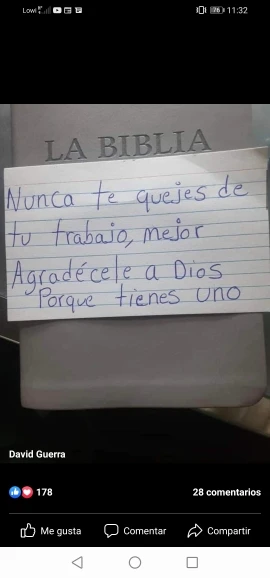 Lowi
76
11:32
LA BIBLIA
Nunca te quejes de
tu trabajo, mejor
Agradécele a Dios
Porque tienes uno
David Guerra
178
28 comentarios
Me gusta
Comentar
Compartir